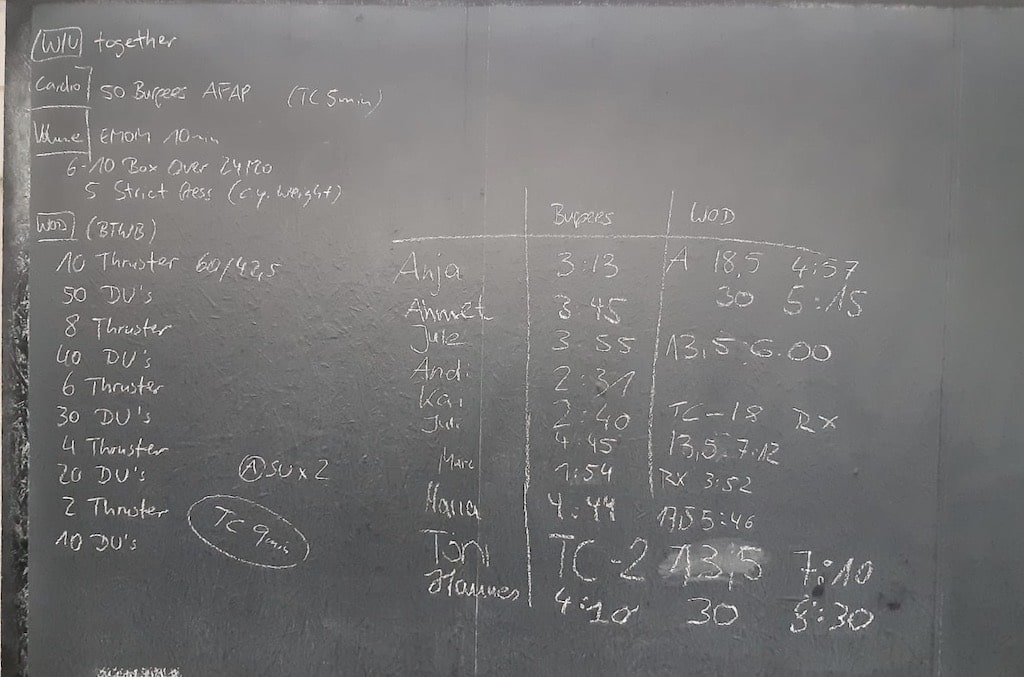 W/U together
Cardio 50 Burpees AFAP (TC 5min)
Volume EMOM 10min
6-10 Box Over 24/20
5 Strict Press (c.y. weight)
WOD (BTWB)
10 Thruster 60/42,5
50 DU's
8 Thruster
40 DU's
6 Thruster
30 DU's
4 Thruster
20 DU's
2 Thruster
10 DU's
A SU x 2
TC 9min
Burpees WOD
Anja 3:13 A 18,5 4:57
Ahmet 3:45 30 5:15
Jule 3:55 13,5 6:00
Andi 2:31
Kai 2:40 TC-18 RX
Juli 4:45 13,5 7:12
Marc 1:54 RX 3:52
Hana 4:44 17,5 5:46
Toni TC-2 13,5 7:10
Hannes 4:10 30 8:30